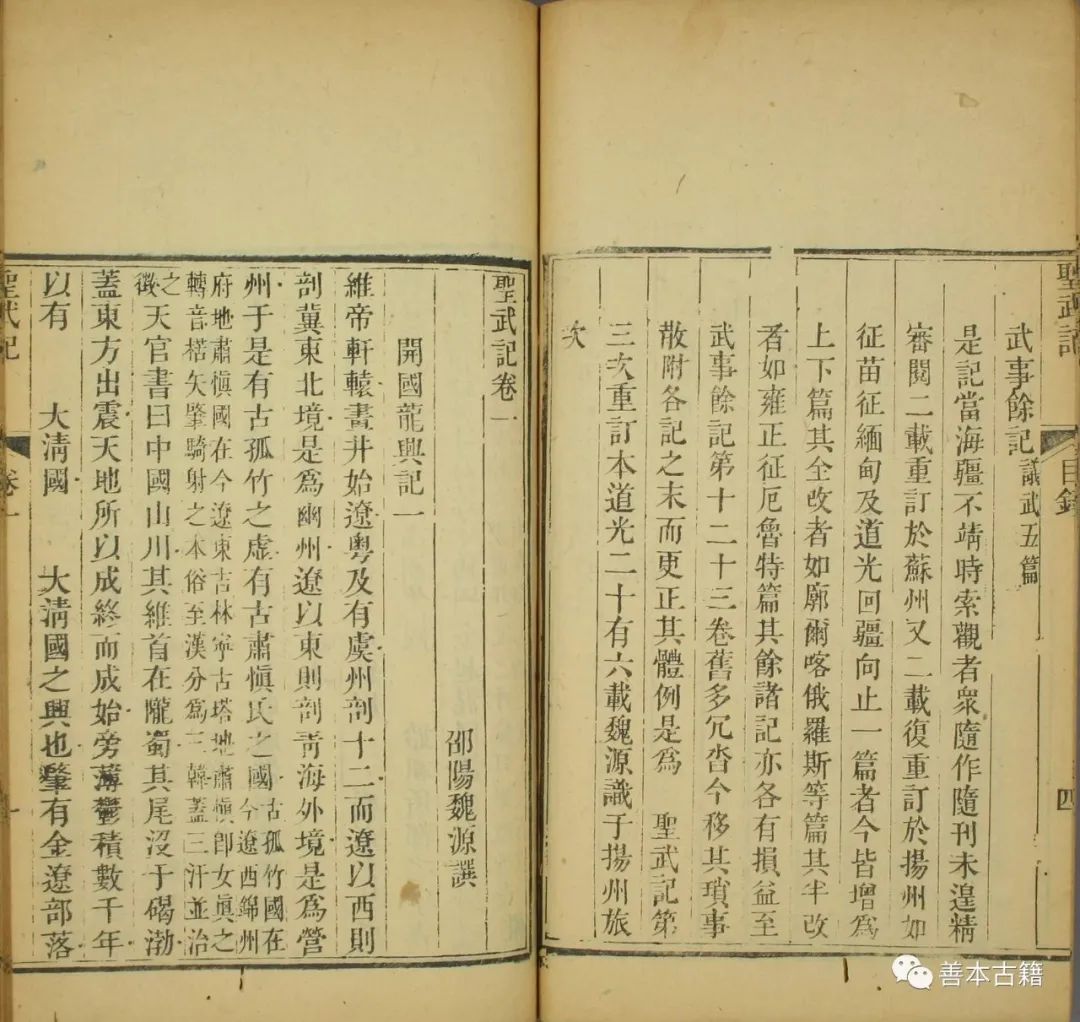 聖武記
目錄
四
武事餘記議武五篇
是記當海疆不靖時索觀者衆隨作隨刊未遑精
審閱二載重訂於蘇州又二載復重訂於揚州如
征苗征緬甸及道光回疆向止一篇者今皆增爲
上下篇其全改者如廓爾喀俄羅斯等篇其半改
者如雍正征厄魯特篇其餘諸記亦各有損益至
武事餘記第十二十三卷舊多冗沓今移其瑣事
散附各記之末而更正其體例是爲 聖武記第
三次重訂本道光二十有六載魏源識于揚州旅
次
聖武記卷一
邵陽魏源譔
開國龍興記一
維帝軒轅畫井始遼粵及有虞州剖十二而遼以西則
剖冀東北境是爲幽州遼以東則剖靑海外境是爲營
州于是有古孤竹之虛有古肅愼氏之國古孤竹國在今遼西錦州
府地肅愼國在今遼東吉林寧古塔地肅愼卽女眞之
轉音楛矢肇騎射之本俗至漢分爲三韓蓋三汗並治
之徵天官書曰中國山川其維首在隴蜀其尾沒于碣渤
蓋東方出震天地所以成終而成始旁薄鬱積數千年
以有 大淸國 大淸國之興也肇有金遼部落
聖武記
卷一
一
善本古籍